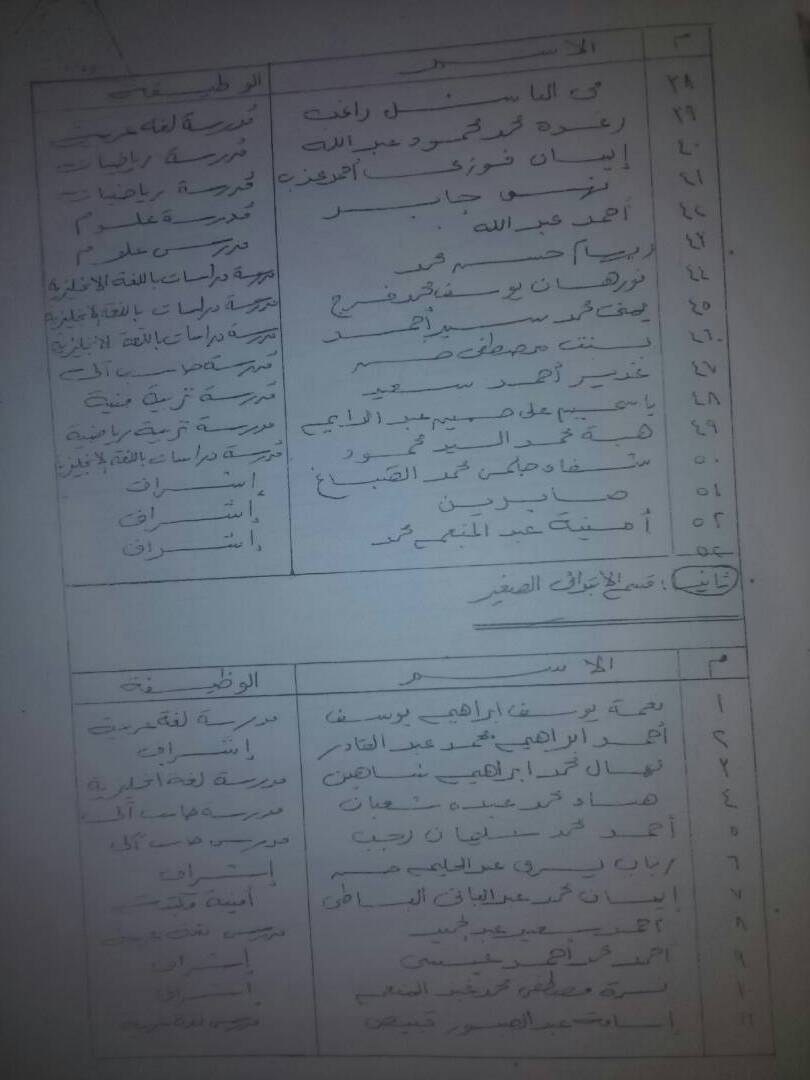 م الاسم الوظيفة
٣٨ مى الباسل راغب مدرسة لغة عربية
٣٩ رغده محمد محمود عبد الله مدرسة رياضيات
٤٠ إيمان فوزى أحمد عزب مدرسة رياضيات
٤١ نهى جابر مدرسة علوم
٤٢ أحمد عبد الله مدرس علوم
٤٣ حسن محمد مدرسة دراسات باللغة الانجليزية
٤٤ نورهان يوسف محمد فرج مدرسة دراسات باللغة الانجليزية
٤٥ يمنى محمد سيد أحمد مدرسة دراسات باللغة الانجليزية
٤٦ بسنت مصطفى حسن مدرسة حاسب آلى
٤٧ غدير أحمد سعيد مدرسة تربية فنية
٤٨ ياسمين على عبد الدايم مدرسة تربية رياضية
٤٩ هبة محمد السيد محمود مدرسة دراسات باللغة الانجليزية
٥٠ شفاء حلمى محمد الصباغ إشراف
٥١ صابرين إشراف
٥٢ أمنية عبد المنعم محمد إشراف
٥٣
ثانيا : قسم الابتدائى الصغير
م الاســـم الوظيفة
١ نعمة يوسف ابراهيم يوسف مدرسة لغة عربية
٢ أحمد ابراهيم محمد عبد القادر إشراف
٣ نهال محمد ابراهيم شاهين مدرسة لغة انجليزية
٤ هناء محمد عبده شعبان مدرسة حاسب آلى
٥ أحمد محمد سليمان رجب مدرس حاسب آلى
٦ رباب يسرى عبد الحليم حسن إشراف
٧ إيمان محمد عبد الباقى أمينة مكتبة
٨ أحمد سعيد مدرس لغة عربية
٩ أحمد محمد أحمد عيسى إشراف
١٠ مصطفى محمد عبد المنعم إشراف
١١ عبد الصبور مدرس لغة عربية